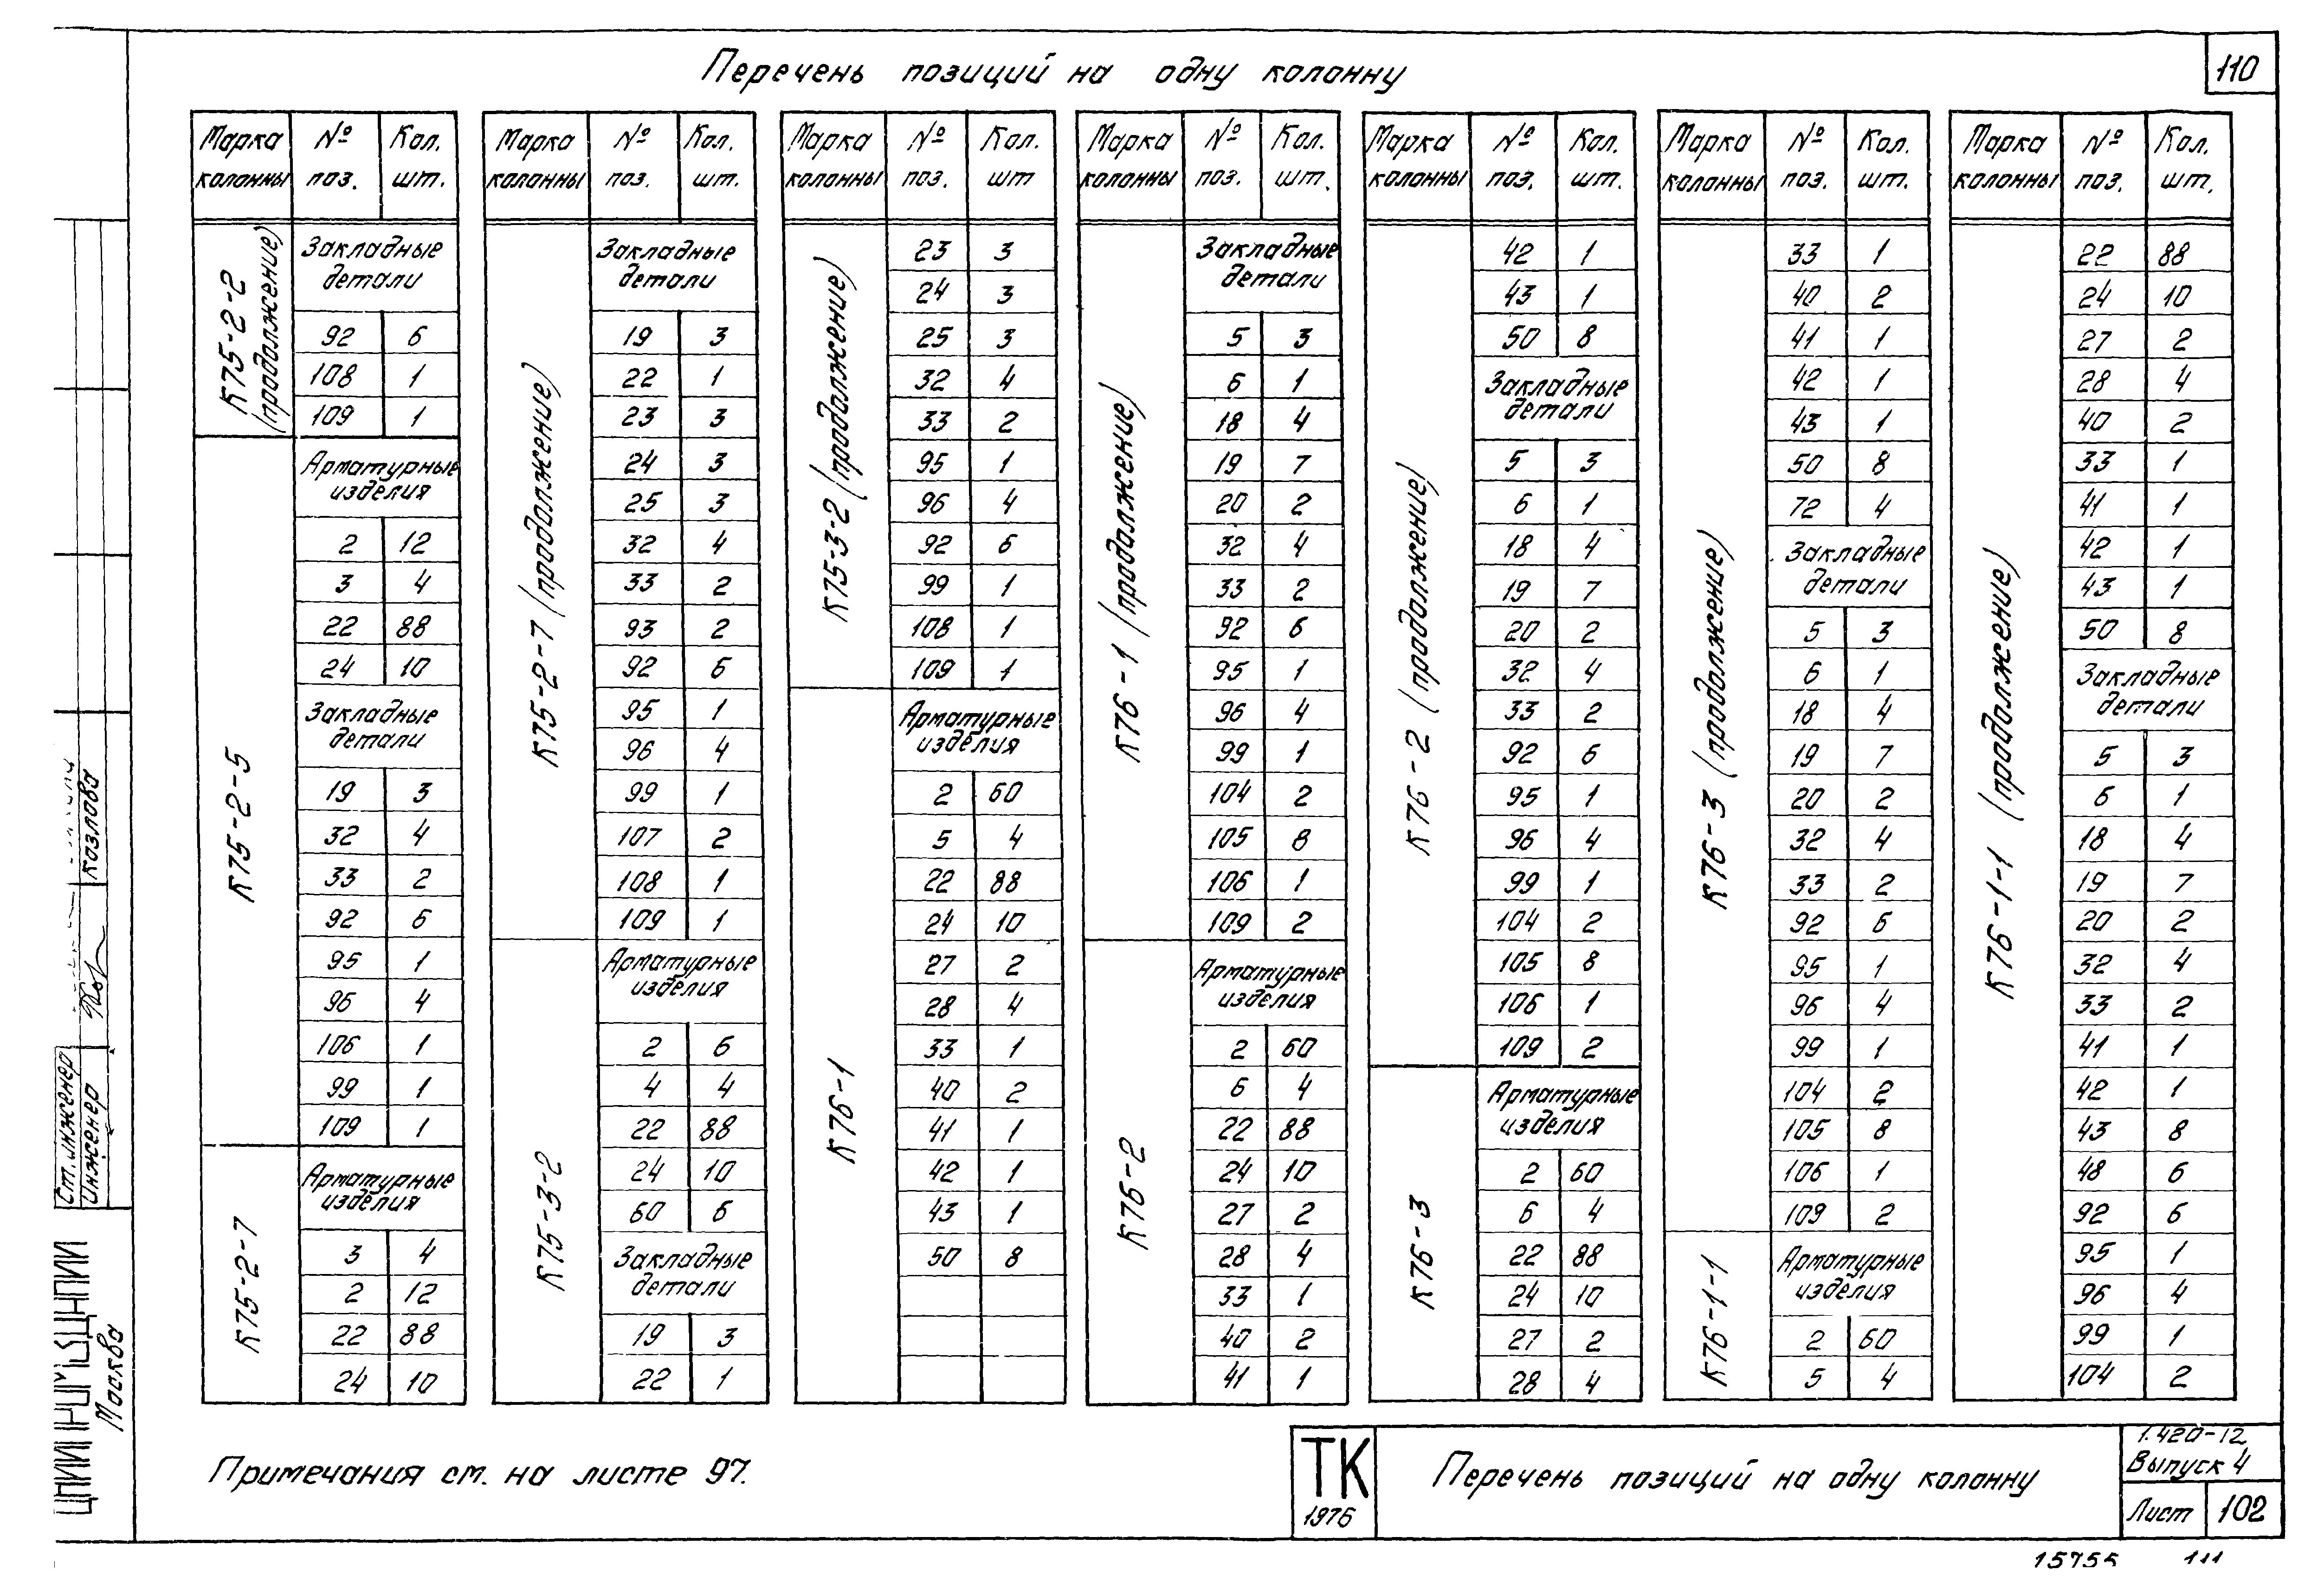 110
Перечень позиций на одну колонну
Марка колонны № поз. Кол. шт.
К75-2-2 (продолжение)
Закладные детали
92 6
108 1
109 1
К75-2-5
Арматурные изделия
2 12
3 4
22 88
24 10
Закладные детали
19 3
32 4
33 2
92 6
95 1
96 4
106 1
99 1
109 1
К75-2-7
Арматурные изделия
3 4
2 12
22 88
24 10
Марка колонны № поз. Кол. шт.
К75-2-7 (продолжение)
Закладные детали
19 3
22 1
23 3
24 3
25 3
32 4
33 2
93 2
92 6
95 1
96 4
99 1
107 2
108 1
109 1
К75-3-2
Арматурные изделия
2 6
4 4
22 88
24 10
60 6
Закладные детали
19 3
22 1
Марка колонны № поз. Кол. шт
К75-3-2 (продолжение)
23 3
24 3
25 3
32 4
33 2
95 1
96 4
92 6
99 1
108 1
109 1
К76-1
Арматурные изделия
2 60
5 4
22 88
24 10
27 2
28 4
33 1
40 2
41 1
42 1
43 1
50 8
Марка колонны № поз. Кол. шт.
К76-1 (продолжение)
Закладные детали
5 3
6 1
18 4
19 7
20 2
32 4
33 2
92 6
95 1
96 4
99 1
104 2
105 8
106 1
109 2
К76-2
Арматурные изделия
2 60
6 4
22 88
24 10
27 2
28 4
33 1
40 2
41 1
Марка колонны № поз. Кол. шт.
К76-2 (продолжение)
42 1
43 1
50 8
Закладные детали
5 3
6 1
18 4
19 7
20 2
32 4
33 2
92 6
95 1
96 4
99 1
104 2
105 8
106 1
109 2
К76-3
Арматурные изделия
2 60
6 4
22 88
24 10
27 2
28 4
Марка колонны № поз. Кол. шт.
К76-3 (продолжение)
33 1
40 2
41 1
42 1
43 1
50 8
72 4
Закладные детали
5 3
6 1
18 4
19 7
20 2
32 4
33 2
92 6
95 1
96 4
99 1
104 2
105 8
106 1
109 2
К76-1-1
Арматурные изделия
2 60
5 4
Марка колонны № поз. Кол. шт.
К76-1-1 (продолжение)
22 88
24 10
27 2
28 4
40 2
33 1
41 1
42 1
43 1
50 8
Закладные детали
5 3
6 1
18 4
19 7
20 2
32 4
33 2
41 1
42 1
43 8
48 6
92 6
95 1
96 4
99 1
104 2
Примечания см. на листе 97.
ТК
1976
Перечень позиций на одну колонну
1.420-12
Выпуск 4
Лист 102
15755 111
Ст. инженер
Инженер Козлова
Москва